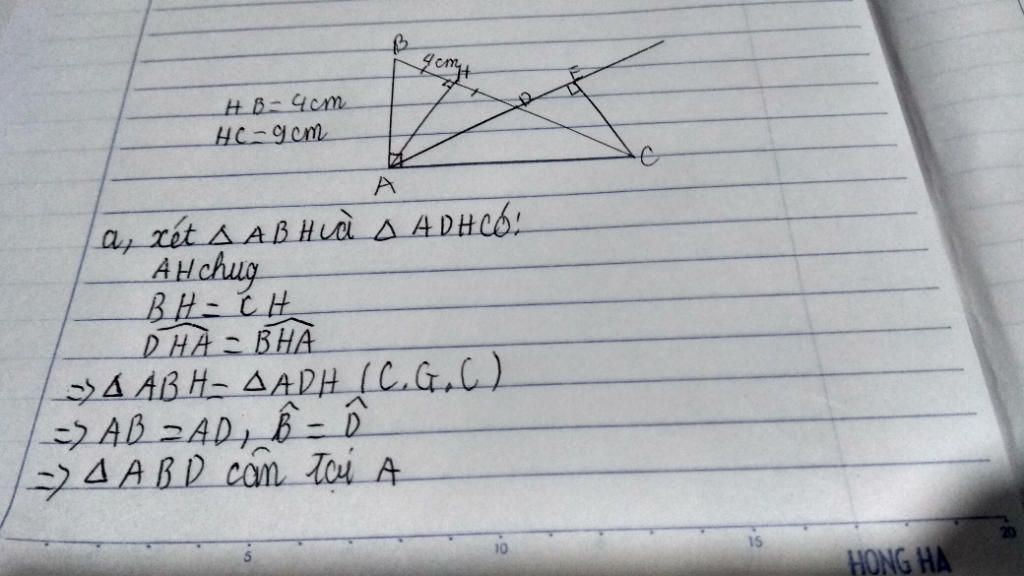 B
4cm
H
E
D
HB = 4cm
HC = 9cm
C
A
a, xét △ ABH và △ ADH CÓ:
AH chug
BH = CH
DHA = BHA
=> △ ABH = △ ADH (C.G.C)
=> AB = AD, B̂ = D̂
=> △ ABD cân tại A
5 10 15 20
HONG HA